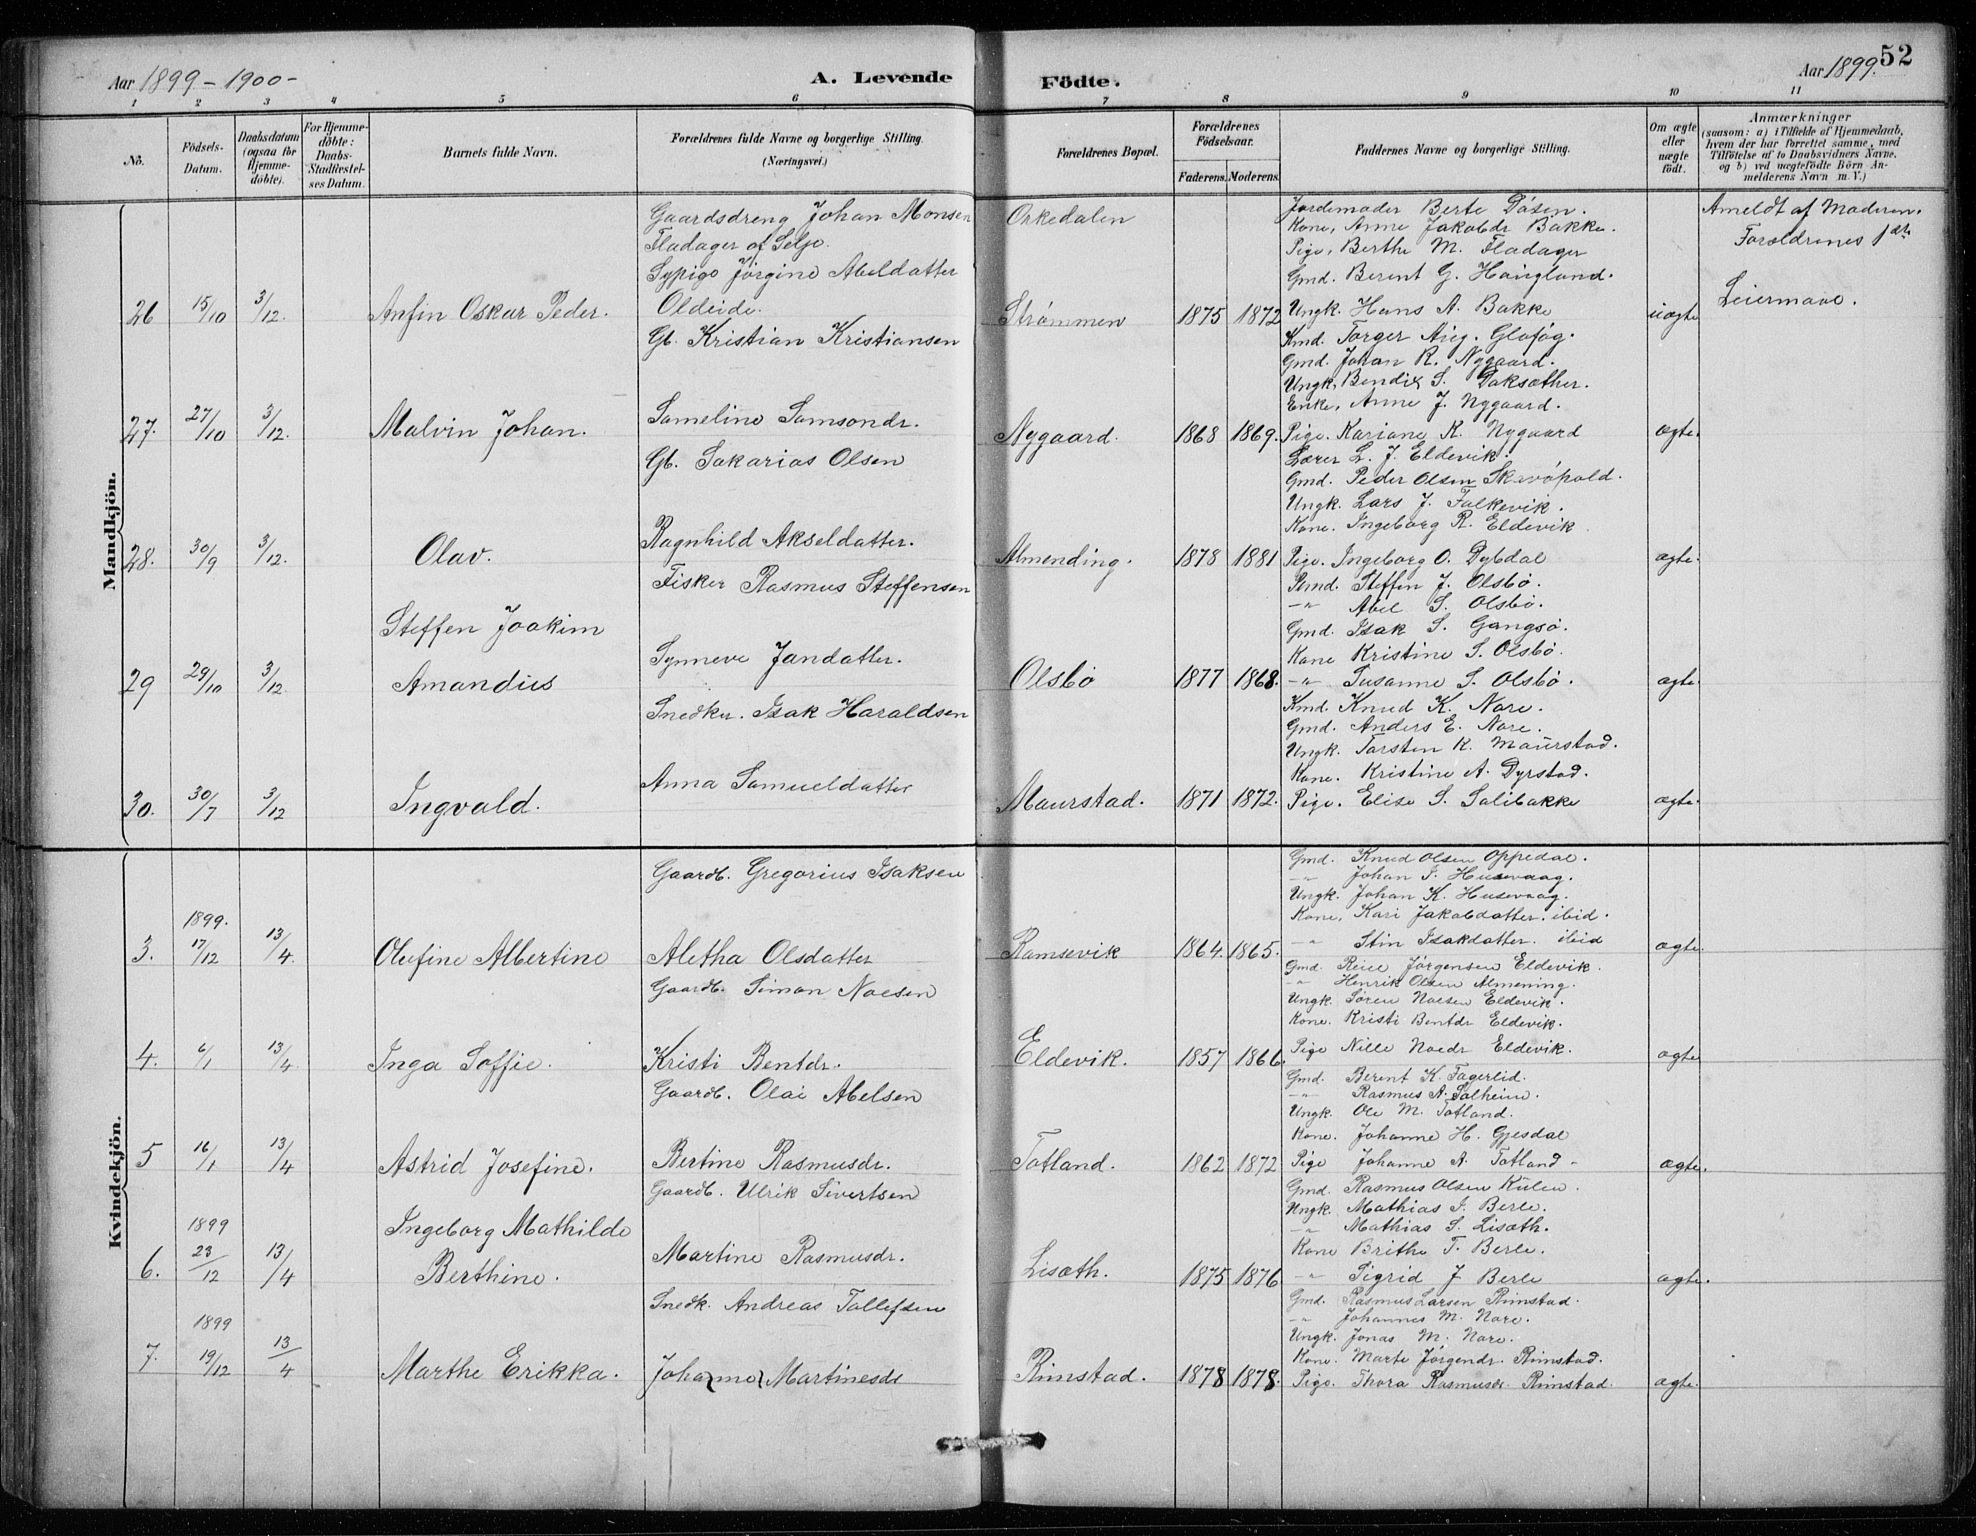 Aar 1899 - 1900 -
A. Levende Födte.
Aar 1899. 52
1 2 3 4 5 6 7 8 9 10 11
No.
Födsels-Datum.
Daabsdatum (ogsaa for Hjemme-döbte).
For Hjemme-döbte: Daabs-Stadfæstel-ses Datum.
Barnets fulde Navn.
Forældrenes fulde Navne og borgerlige Stilling.
(Næringsvei.)
Forældrenes Bopæl.
Forældrenes Födselsaar.
Faderens. Moderens.
Faddernes Navne og borgerlige Stilling.
Om ægte eller uægte födt.
Anmærkninger
(saasom: a) i Tilfælde af Hjemmedaab, hvem der har forrettet samme, med Tilföielse af to Daabsvidners Navne, og b) ved uægtefödte Börn An-melderens Navn m. V.)
Mandkjön.
26 15/10 3/12. Anfin Oskar Peder.
Gaardsdreng Johan Monsen
Fladager af Selje.
Sypige Jörgine Abeldatter
Oldeide.
Orkedalen
Strømmen 1875 1872
Jordemoder Berte Dösen.
Kone, Anne Jakobdr Bakke.
Pige, Berthe M. Fladager
Gmd. Berent G. Haugland.
Ungk. Hans A. Bakke
uægte
Anmeldt af Moderen.
Forældrenes 1ste
Leiermaal.
27. 27/10 3/12. Malvin Johan.
Gb. Kristian Kristiansen
Sameline Samsondr.
Nygaard. 1868 1869.
Kmd. Torger Aug.
Gmd. Johan R. Nygaard.
Ungk, Bendix S. Daksæther.
Enke, Anne J. Nygaard.
Pige. Kariane K. Nygaard
ægte.
28. 30/9 3/12. Olav.
Gb. Sakarias Olsen
Ragnhild Akseldatter.
Almending. 1878 1881
Lærer L. J. Eldevik.
Gmd. Peder Olsen
Ungk. Lars J. Falkevik.
Kone. Ingeborg R. Eldevik
Pige. Ingeborg O. Dybdal
ægte.
29 29/10 3/12 Steffen Joakim
Amandus
Fisker Rasmus Steffensen
Synneve Jandatter.
Olsbö 1877 1868.
Gmd. Steffen J. Olsbö.
-"- Abel S. Olsbö.
Gmd. Isak S. Gangsö.
Kone Kristine S. Olsbö.
-"- Susanne S. Olsbö.
ægte.
30. 30/7 3/12 Ingvald.
Snedker. Isak Haraldsen
Anna Samueldatter
Maurstad. 1871 1872.
Kmd. Knud K. Nore.
Gmd. Anders E. Nore.
Ungk. Torsten K. Maurstad.
Kone. Kristine A. Dyrstad.
Pige. Elise S. Salibakke
ægte.
Kvindekjön.
3. 1899. 17/12 13/4. Olufine Albertine
Gaardb. Gregorius Isaksen
Aletha Olsdatter
Ramsevik 1864. 1865.
Gmd. Knud Olsen Oppedal.
-"- Johan I. Husevaag.
Ungk. Johan K. Husevaag.
Kone, Kari Jakobdatter. ibid.
-"- Stin Isakdatter. ibid
ægte.
4. 6/1 13/4. Inga Soffie.
Gaardb. Simon Noesen
Kristi Bentdr.
Eldevik. 1857 1866.
Gmd. Jörgensen Eldevik.
-"- Henrik Olsen Almening.
Ungk. Sören Noesen Eldevik.
Kone. Kristi Bentdr Eldevik.
Pige Nille Noedr Eldevik.
ægte
5 16/1 13/4 Astrid Josefine.
Gaardb. Olai Abelsen
Bertine Rasmusdr.
Totland. 1862 1872
Gmd. Berent K. Fagerlid.
-"- Rasmus A. Solheim.
Ungk. Ole M. Totland.
Kone. Johanne H. Gjesdal
Pige Johanne A. Totland -
ægte.
6. 1899 23/12 13/4 Ingeborg Mathilde
Berthine.
Gaardb. Ulrik Sivertsen
Martine Rasmusdr.
Lisæth. 1875 1876
Gmd. Rasmus Olsen
Ungk. Mathias I. Berle.
-"- Mathias S. Lisæth.
Kone Brithe T. Berle.
-"- Sigrid J Berle
ægte.
7. 1899 19/12 13/4 Marthe Erikka.
Snedk. Andreas Tollefsen
Johanne Martinesdr
Rimstad. 1878 1878.
Gmd. Rasmus Larsen Rimstad.
-"- Johannes M. Nore.
Ungk. Jonas M. Nore.
Kone. Marte Jörgendr. Rimstad.
Pige. Thora Rasmusdr. Rimstad.
ægte.